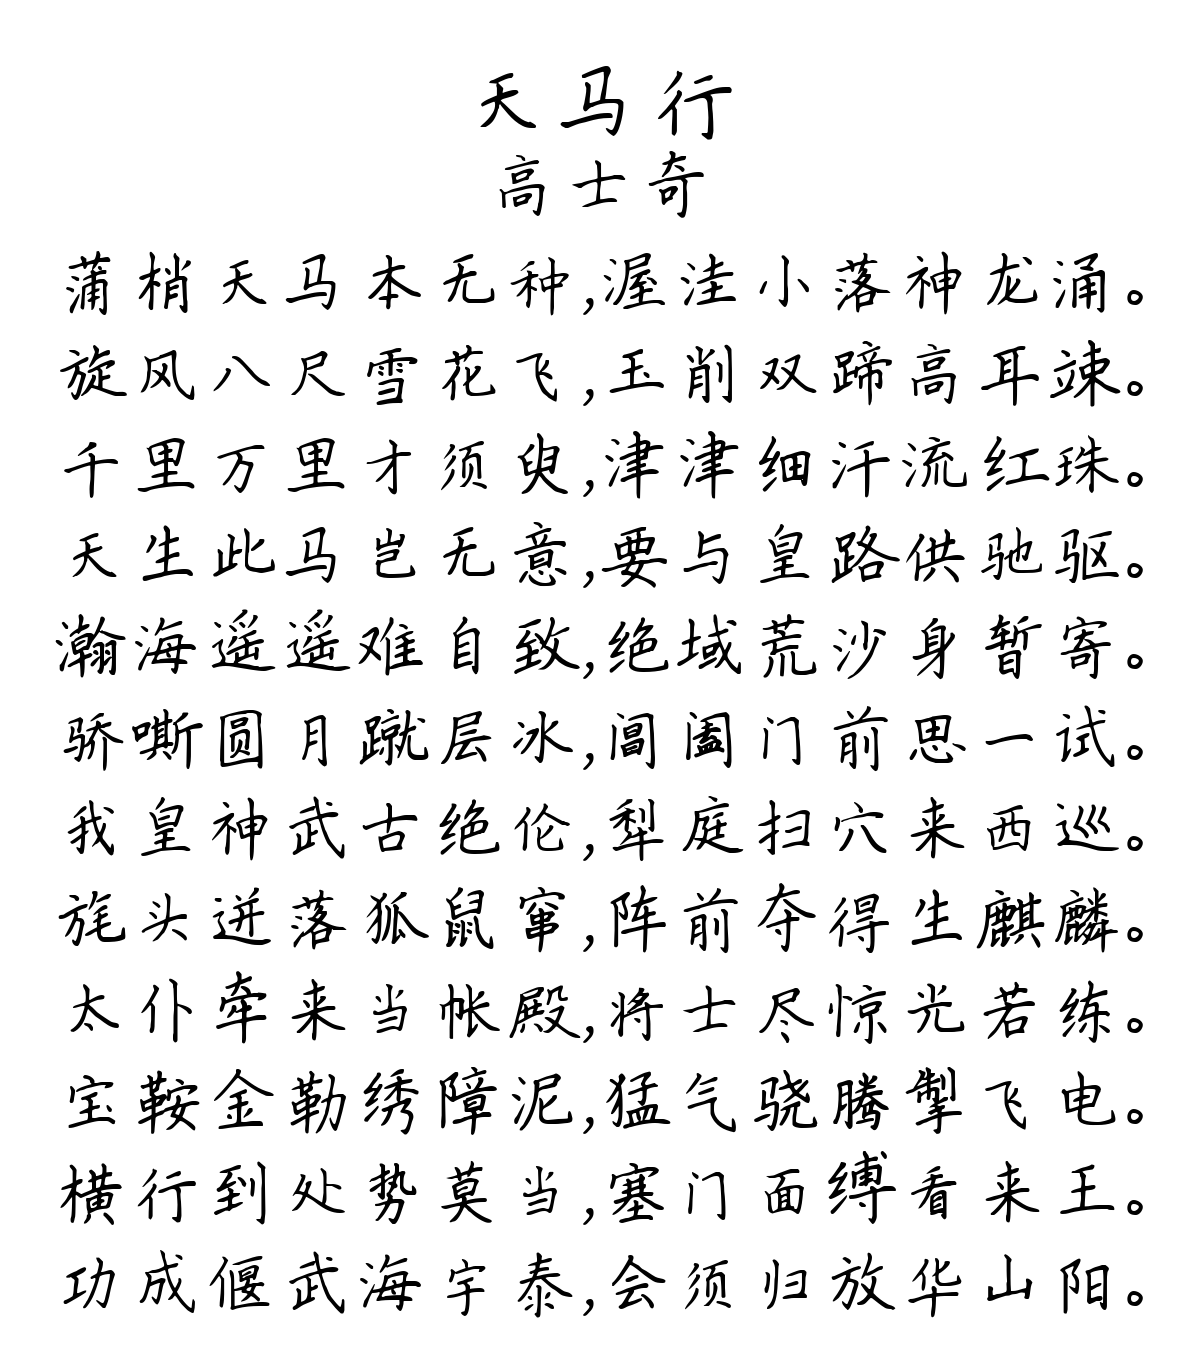 天马行
高士奇
蒲梢天马本无种,渥洼小落神龙涌。
旋风八尺雪花飞,玉削双蹄高耳竦。
千里万里才须臾,津津细汗流红珠。
天生此马岂无意,要与皇路供驰驱。
瀚海遥遥难自致,绝域荒沙身暂寄。
骄嘶圆月蹴层冰,阊阖门前思一试。
我皇神武古绝伦,犁庭扫穴来西巡。
旄头迸落狐鼠窜,阵前夺得生麒麟。
太仆牵来当帐殿,将士尽惊光若练。
宝鞍金勒绣障泥,猛气骁腾掣飞电。
横行到处势莫当,塞门面缚看来王。
功成偃武海宇泰,会须归放华山阳。